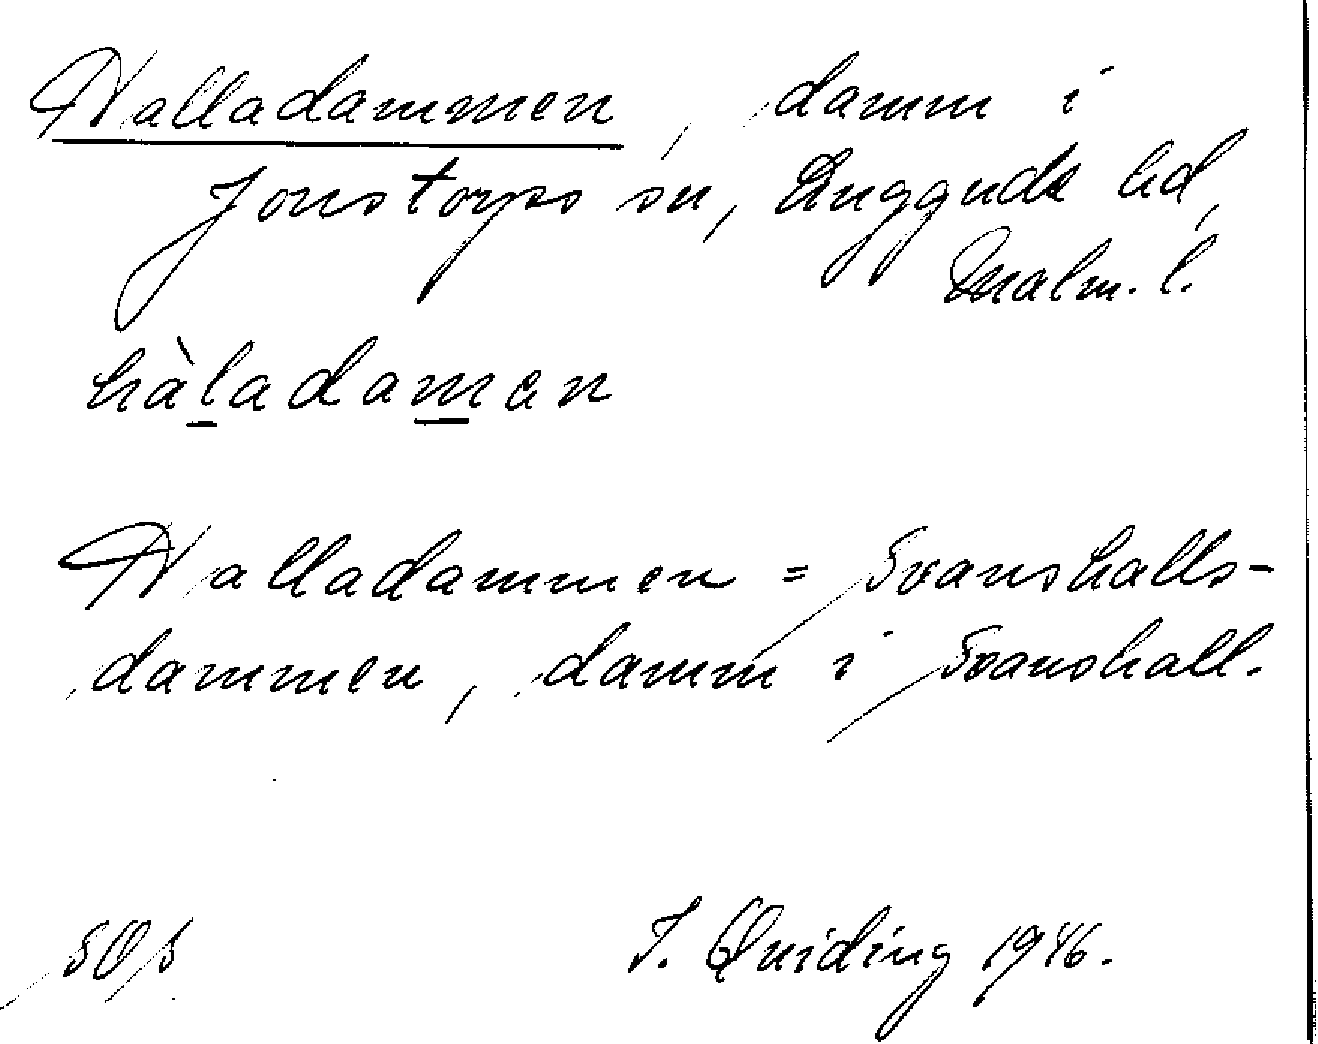 Halladammen, damm i
Jonstorps sn, Luggude hd,
Malm. l.
hàladamən
Halladammen = Svanshalls-
dammen, damm i Svanshall.
SOS
I. Quiding 1946.